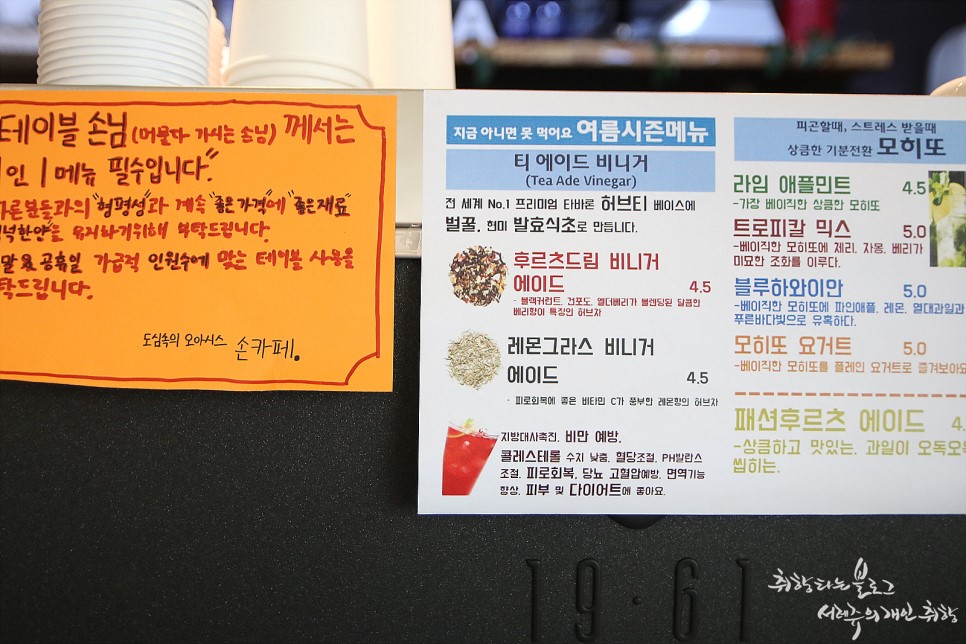 테이블 손님 (머물다 가시는 손님) 께서는
1인 1메뉴 필수입니다."
다른분들과의 "형평성"과 계속 "좋은가격"에 "좋은재료"
유지하기위해 부탁드립니다.
공휴일 가급적 인원수에 맞는 테이블 사용을
부탁드립니다.
도심속의 오아시스 손카페.
지금 아니면 못 먹어요 여름시즌메뉴
티 에이드 비니거
(Tea Ade Vinegar)
전 세계 No.1 프리미엄 타바론 허브티 베이스에
벌꿀, 현미 발효식초로 만듭니다.
후르츠드림 비니거
에이드 4.5
- 블랙커런트, 건포도, 엘더베리가 블렌딩된 달콤한
베리향이 특징인 허브차
레몬그라스 비니거
에이드 4.5
- 피로회복에 좋은 비타민 C가 풍부한 레몬향의 허브차
지방대사촉진, 비만 예방,
콜레스테롤 수치 낮춤, 혈당조절, PH발란스
조절, 피로회복, 당뇨 고혈압예방, 면역기능
향상, 피부 및 다이어트에 좋아요.
피곤할때, 스트레스 받을때
상큼한 기분전환 모히또
라임 애플민트 4.5
-가장 베이직한 상큼한 모히또
트로피칼 믹스 5.0
-베이직한 모히또에 체리, 자몽, 베리가
미묘한 조화를 이루다.
블루하와이안 5.0
-베이직한 모히또에 파인애플, 레몬, 열대과일과
푸른바다빛으로 유혹하다.
모히또 요거트 5.0
-베이직한 모히또를 플레인 요거트로 즐겨보아요
패션후르츠 에이드 4.
-상큼하고 맛있는, 과일이 오독오독
씹히는.
19·61
취향타는 블로그
서레주의 개인 취향